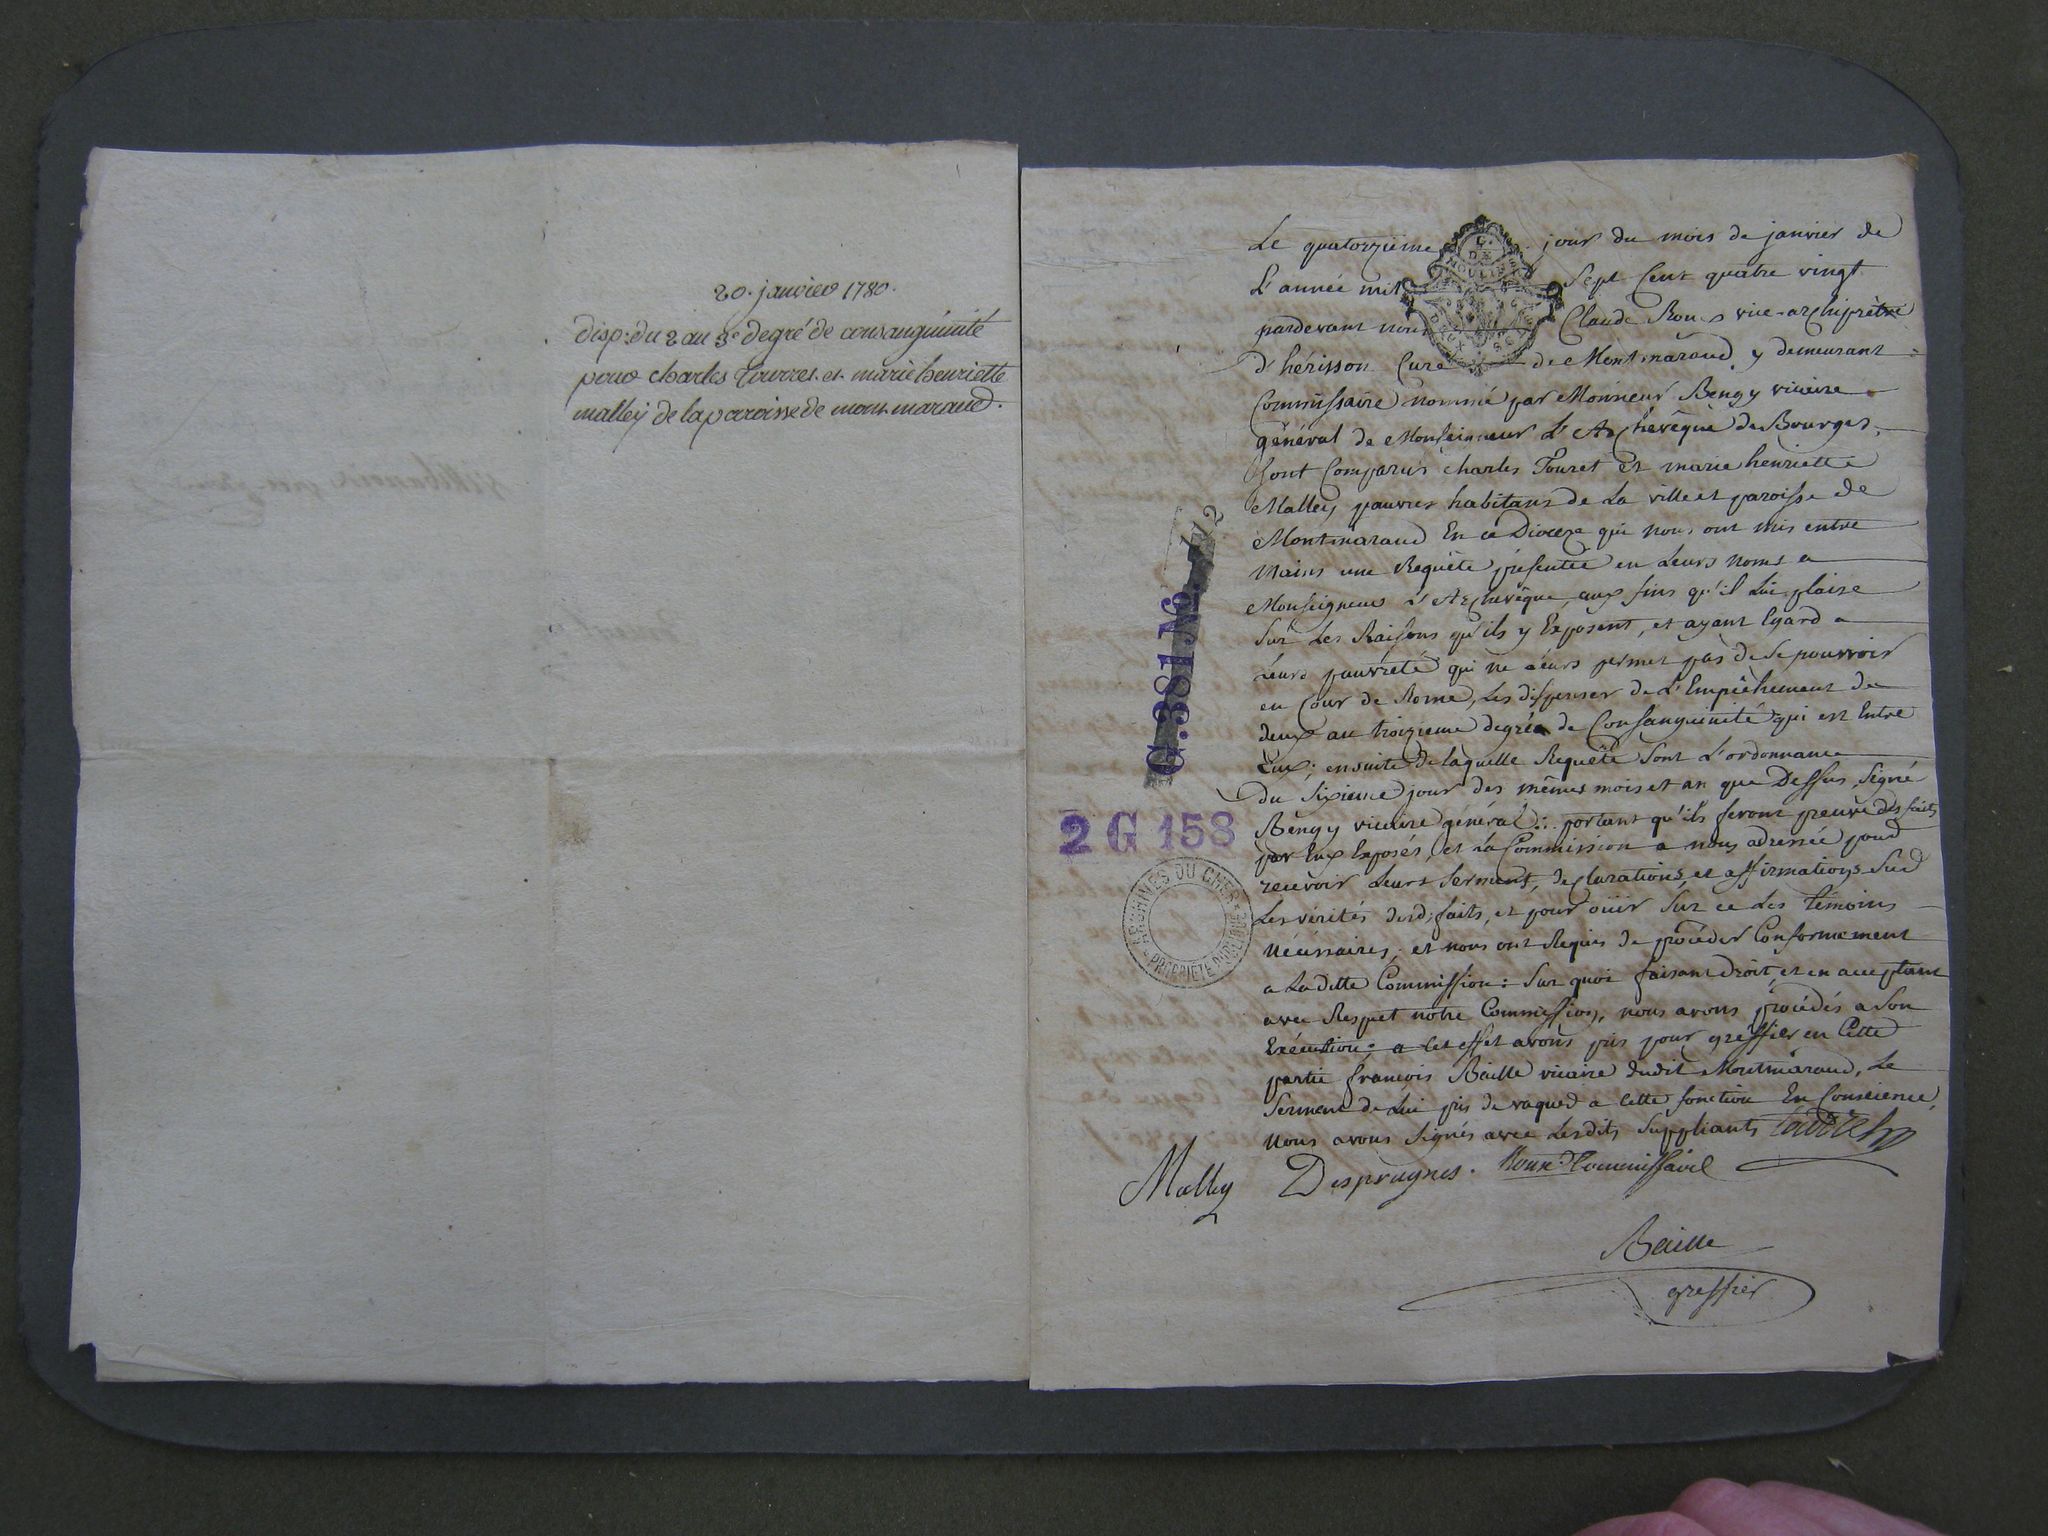 20. janvier 1780.
disp. du 2 au 3e degré de consanguinité
pour charles Tourret et marie henriette
malley de la paroisse de montmaraud.
Le quatorzième jour du mois de janvier de
L'année mil Sept Cent quatre vingt
pardevant nous Claude Roux vice-archiprètre
d'hérisson Curé de Montmaraud y demeurant
Commissaire nommé par Monsieur Bengy vicaire
général de Monseigneur L'Archevêque de Bourges,
Sont Comparus charles Touret et marie henriette
Malley pauvres habitans de La ville et paroisse de
Montmaraud En ce Diocèze qui nous ont mis entre
Mains une Requête présentée en Leurs Noms a
Monseigneur L'Archevêque, aux fins qu'il Lui plaise
Sur Les Raisons qu'ils y Exposent, et ayant Egard a
Leurs pauvreté qui ne Leurs permet pas de Se pourvoir
en Cour de Rome, Les dispenser de L'Empêchement de
deux au troizieme degrée de Consanguinité qui est Entre
Eux; ensuite de laquelle Requête Sont L'ordonnance
du Sixieme jour des mêmes mois et an que Dessus, Signé
Bengy vicaire général: portant qu'ils feront preuve des faits
par Eux Exposés, et La Commission a nous adressée pour
recevoir Leurs Serment, declarations et affirmations Sur
Les vérités desd: faits, et pour oüir Sur ce Les témoins
Nécessaires, et nous ont Requis de procéder Conformement
a Ladite Commission: Sur quoi faisant Droit, et en acceptant
avec Respect notre Commission, nous avons procédés a Son
Exécution; a Cet effet avons pris pour greffier en Cette
partie françois Baille vicaire dudit Montmaraud, Le
Serment de Lui pris de vaquer a Cette fonction En Conscience,
Nous avons Signés avec Lesdits Suppliants Touret
Malley Desprugnes. Roux Commissaire
Baille
greffier
G. 381. No.
2 G 158
ARCHIVES DU CHER
PROPRIETE PUBLIQUE
G. DE
MOULINS
DEUX SOLS